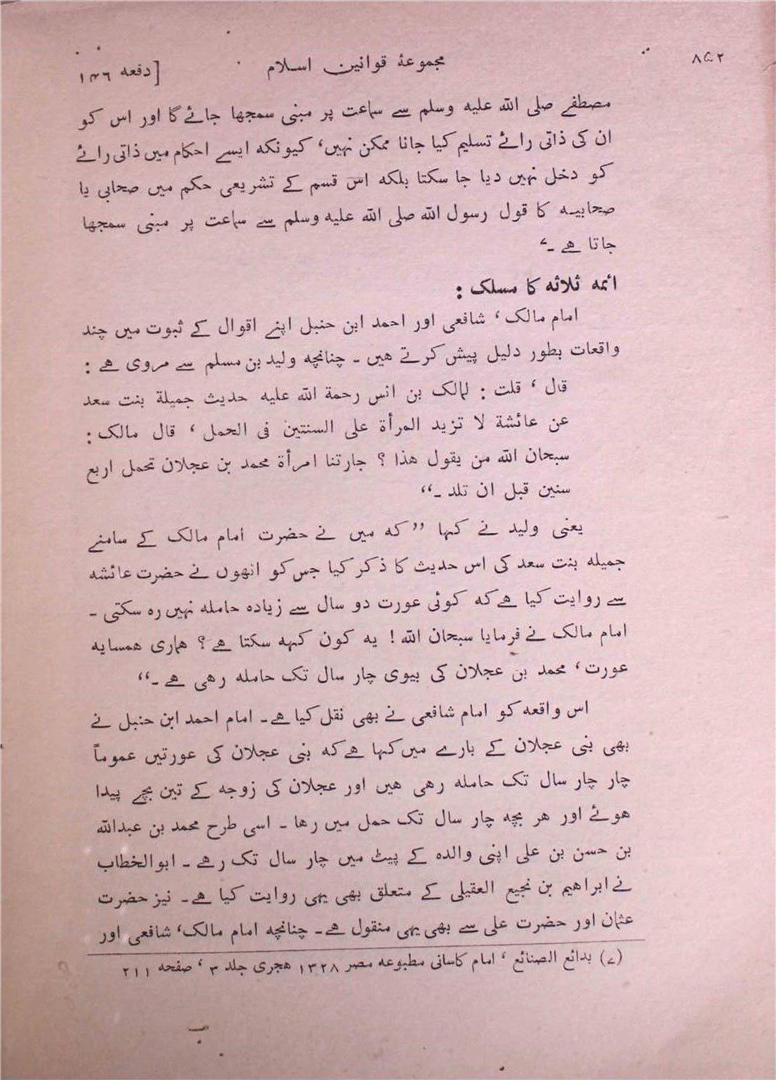 ۸۵۲
مجموعۂ قوانین اسلام
[دفعہ ۱۴۶
مصطفے صلی اللہ علیہ وسلم سے سماعت پر مبنی سمجھا جائے گا اور اس کو
ان کی ذاتی رائے تسلیم کیا جانا ممکن نہیں، کیونکہ ایسے احکام میں ذاتی رائے
کو دخل نہیں دیا جا سکتا بلکہ اس قسم کے تشریعی حکم میں صحابی یا
صحابیہ کا قول رسول اللہ صلی اللہ علیہ وسلم سے سماعت پر مبنی سمجھا
جاتا ہے ۔۷
ائمہ ثلاثہ کا مسلک :
امام مالک، شافعی اور احمد ابن حنبل اپنے اقوال کے ثبوت میں چند
واقعات بطور دلیل پیش کرتے ہیں ۔ چنانچہ ولید بن مسلم سے مروی ہے :
قال ، قلت : لمالک بن انس رحمة اللہ علیہ حدیث جمیلة بنت سعد
عن عائشة لا تزید المرأة علی السنتین فی الحمل ، قال مالک :
سبحان اللہ من یقول ھذا ؟ جارتنا امرأة محمد بن عجلان تحمل اربع
سنین قبل ان تلد ۔“
یعنی ولید نے کہا ”کہ میں نے حضرت امام مالک کے سامنے
جمیلہ بنت سعد کی اس حدیث کا ذکر کیا جس کو انھوں نے حضرت عائشہ
سے روایت کیا ہے کہ کوئی عورت دو سال سے زیادہ حاملہ نہیں رہ سکتی ۔
امام مالک نے فرمایا سبحان اللہ ! یہ کون کہہ سکتا ہے ؟ ہماری ہمسایہ
عورت، محمد بن عجلان کی بیوی چار سال تک حاملہ رہی ہے ۔“
اس واقعہ کو امام شافعی نے بھی نقل کیا ہے ۔ امام احمد ابن حنبل نے
بھی بنی عجلان کے بارے میں کہا ہے کہ بنی عجلان کی عورتیں عموماً
چار چار سال تک حاملہ رہی ہیں اور عجلان کی زوجہ کے تین بچے پیدا
ہوئے اور ہر بچہ چار سال تک حمل میں رہا ۔ اسی طرح محمد بن عبداللہ
بن حسن بن علی اپنی والدہ کے پیٹ میں چار سال تک رہے ۔ ابوالخطاب
نے ابراہیم بن نجیع العقیلی کے متعلق بھی یہی روایت کیا ہے ۔ نیز حضرت
عثمان اور حضرت علی سے بھی یہی منقول ہے ۔ چنانچہ امام مالک، شافعی اور
(۷) بدائع الصنائع ، امام کاسانی مطبوعہ مصر ۱۳۲۸ ہجری جلد ۳ ، صفحہ ۲۱۱